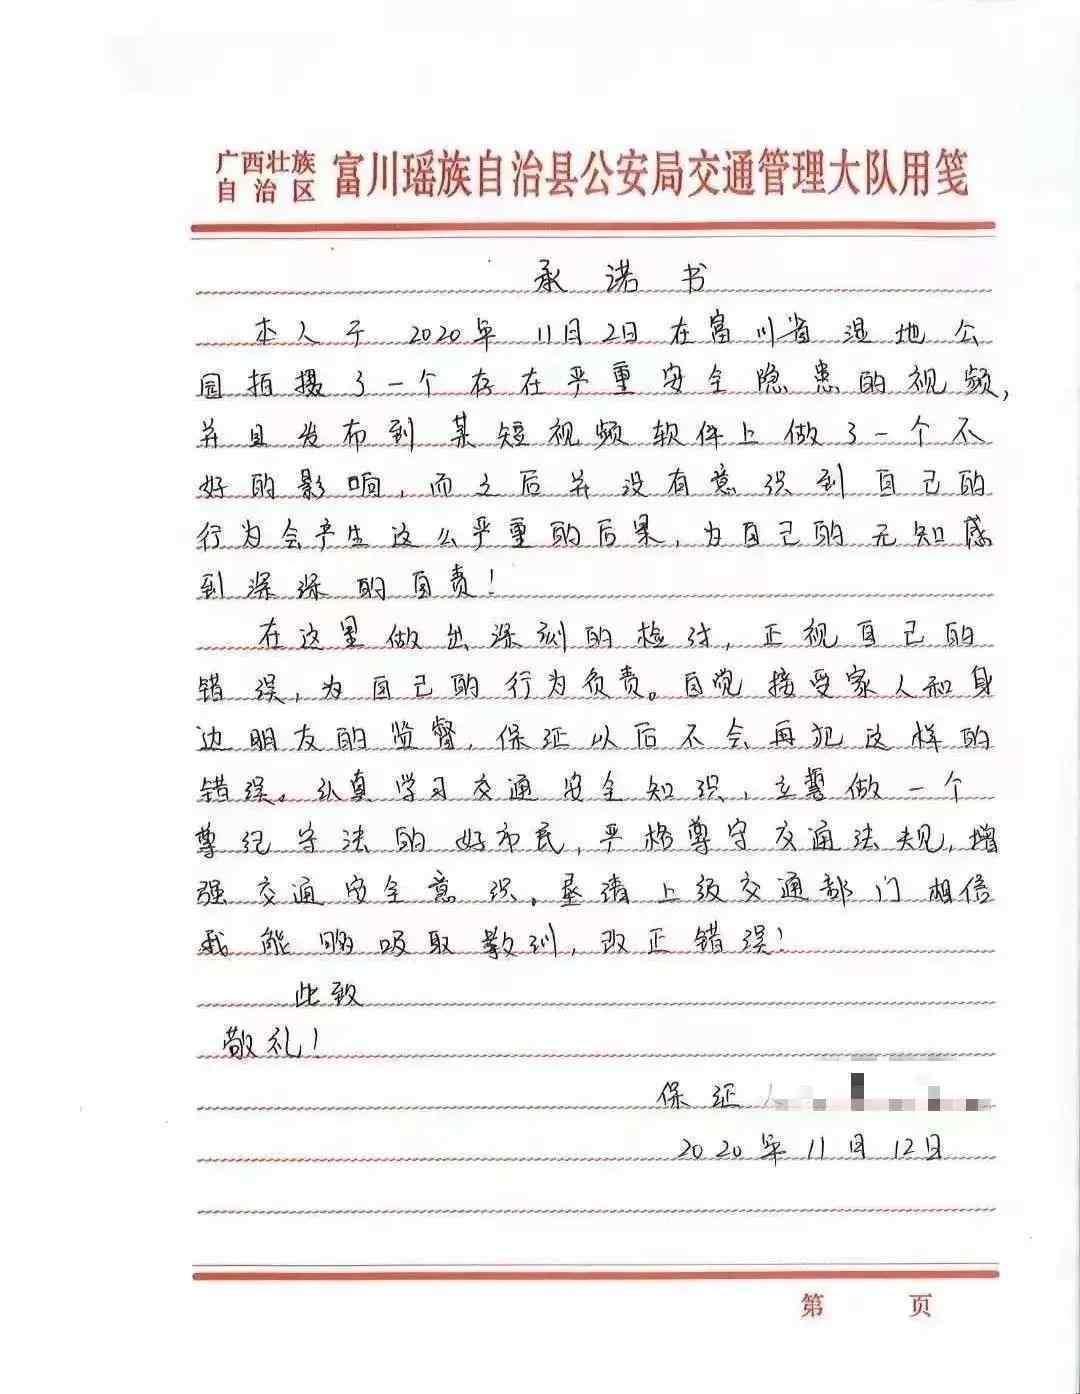 广西壮族
自治区
富川瑶族自治县公安局交通管理大队用笺
承诺书
本人于2020年11月2日在富川省湿地公
园拍摄了一个存在严重安全隐患的视频,
并且发布到某短视频软件上做了一个不
好的影响,而之后并没有意识到自己的
行为会产生这么严重的后果,为自己的无知感
到深深的自责!
在这里做出深刻的检讨,正视自己的
错误,为自己的行为负责。自觉接受家人和身
边朋友的监督,保证以后不会再犯这样的
错误。认真学习交通安全知识,立誓做一个
尊纪守法的好市民,严格尊守交通法规,增
强交通安全意识。垦请上级交通部门相信
我能够吸取教训,改正错误!
此致
敬礼!
保证人
2020年11月12日
第 页